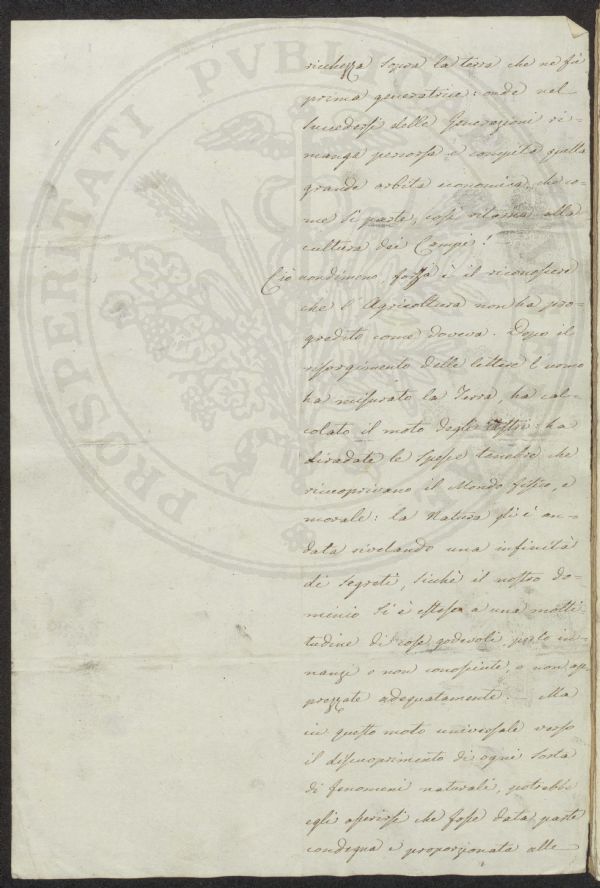 ricchezza sopra la terra che ne fù
prima generatrice: onde nel
succedersi delle Generazioni ri-
manga percorsa e compita quella
grande orbita economica, che co-
me si parte, così ritorna alla
cultura dei Campi!
Ciò nondimeno, forza è il riconoscere
che l'Agricoltura non ha pro-
gredito come doveva. Dopo il
risorgimento delle lettere l'uomo
ha misurato la Terra, ha cal-
colato il moto degli astri: ha
diradate le spesse tenebre che
ricoprivano il Mondo fisico, e
morale: la Natura gli è an-
data rivelando una infinità
di segreti, sicchè il nostro do-
minio si è esteso a una molti-
tudine di cose godevoli, per lo in-
nanzi o non conosciute, o non ap-
prezzate adeguatamente. — Ma
in questo moto universale verso
il discuoprimento di ogni sorta
di fenomeni naturali, potrebbe
egli asserirsi che fosse data parte
condegna e proporzionata alle
PROSPERITATI PVBLIC